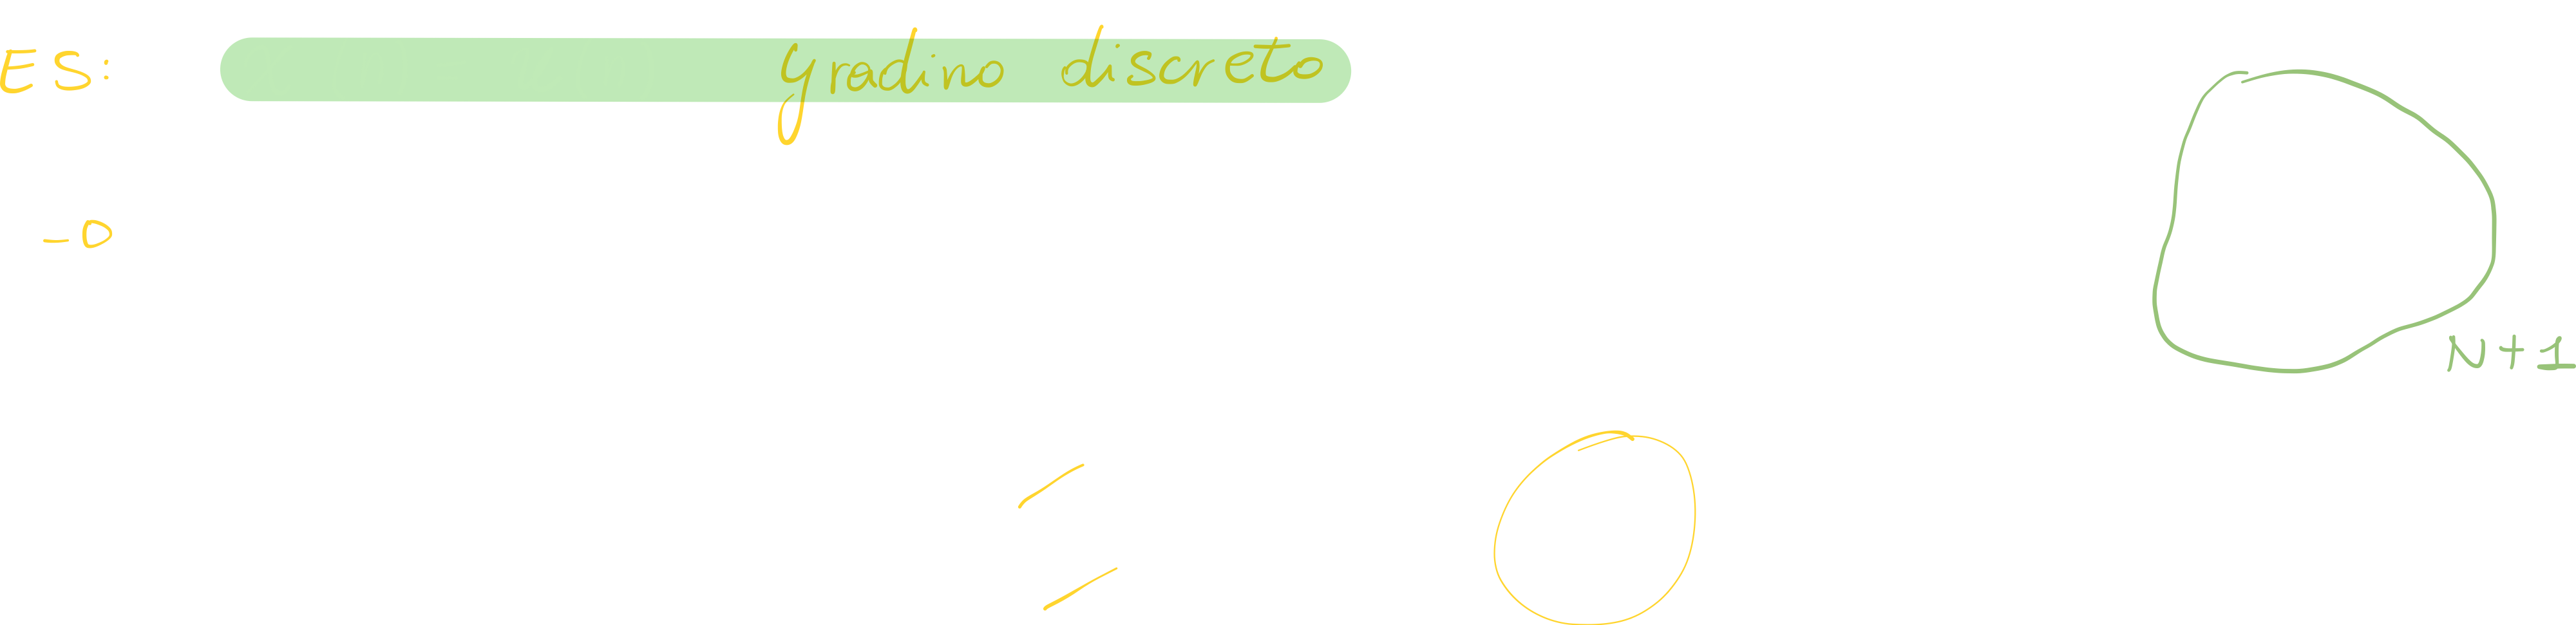 ES: gradino discreto
-D
N+1